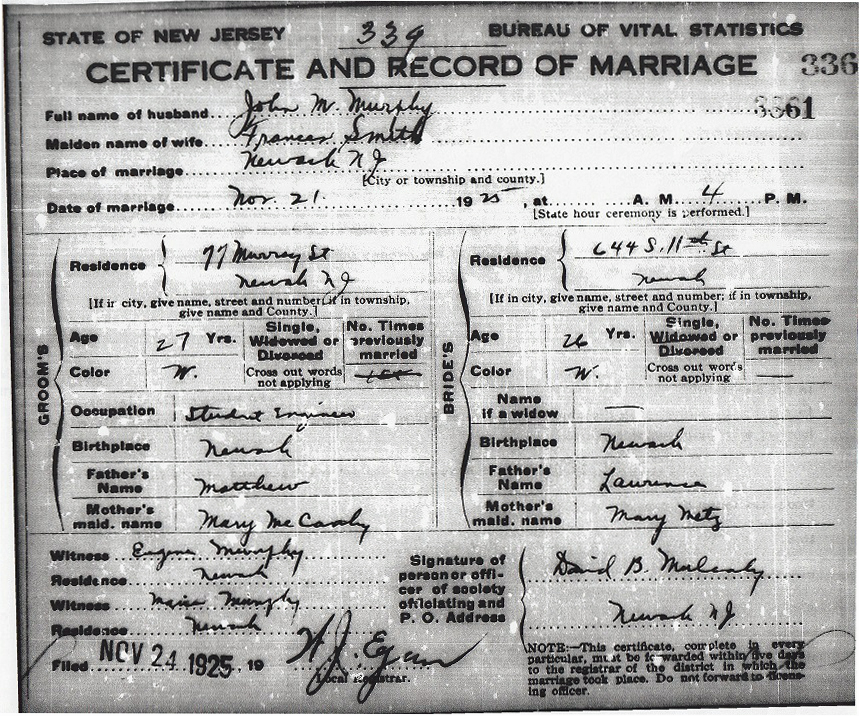 STATE OF NEW JERSEY 339 BUREAU OF VITAL STATISTICS
CERTIFICATE AND RECORD OF MARRIAGE 336
Full name of husband John M. Murphy 3361
Maiden name of wife Frances Smith
Place of marriage Newark NJ
[City or township and county.]
Date of marriage Nov. 21. 1925, at A. M. 4 P. M.
[State hour ceremony is performed.]
GROOM'S
Residence 77 Murray St
Newark NJ
[If in city, give name, street and number; if in township,
give name and County.]
Age 27 Yrs. Single, Widowed or Divorced No. Times previously married
Color W. Cross out words not applying 1st
Occupation Student Engineer
Birthplace Newark
Father's Name Matthew
Mother's maid. name Mary
BRIDE'S
Residence 644 S. 11th St
Newark
[If in city, give name, street and number; if in township,
give name and County.]
Age 26 Yrs. Single, Widowed or Divorced No. Times previously married
Color W. Cross out words not applying —
Name if a widow —
Birthplace Newark
Father's Name Lawrence
Mother's maid. name Mary Metz
Witness Eugene Murphy
Residence Newark
Witness Marie Murphy
Residence Newark
Filed NOV 24 1925 19
W. J. Egan
Local Registrar.
Signature of
person or offi-
cer of society
officiating and
P. O. Address
David B. Mulcahy
Newark NJ
NOTE:—This certificate, complete in every
particular, must be forwarded within five days
to the registrar of the district in which the
marriage took place. Do not forward to licens-
ing officer.